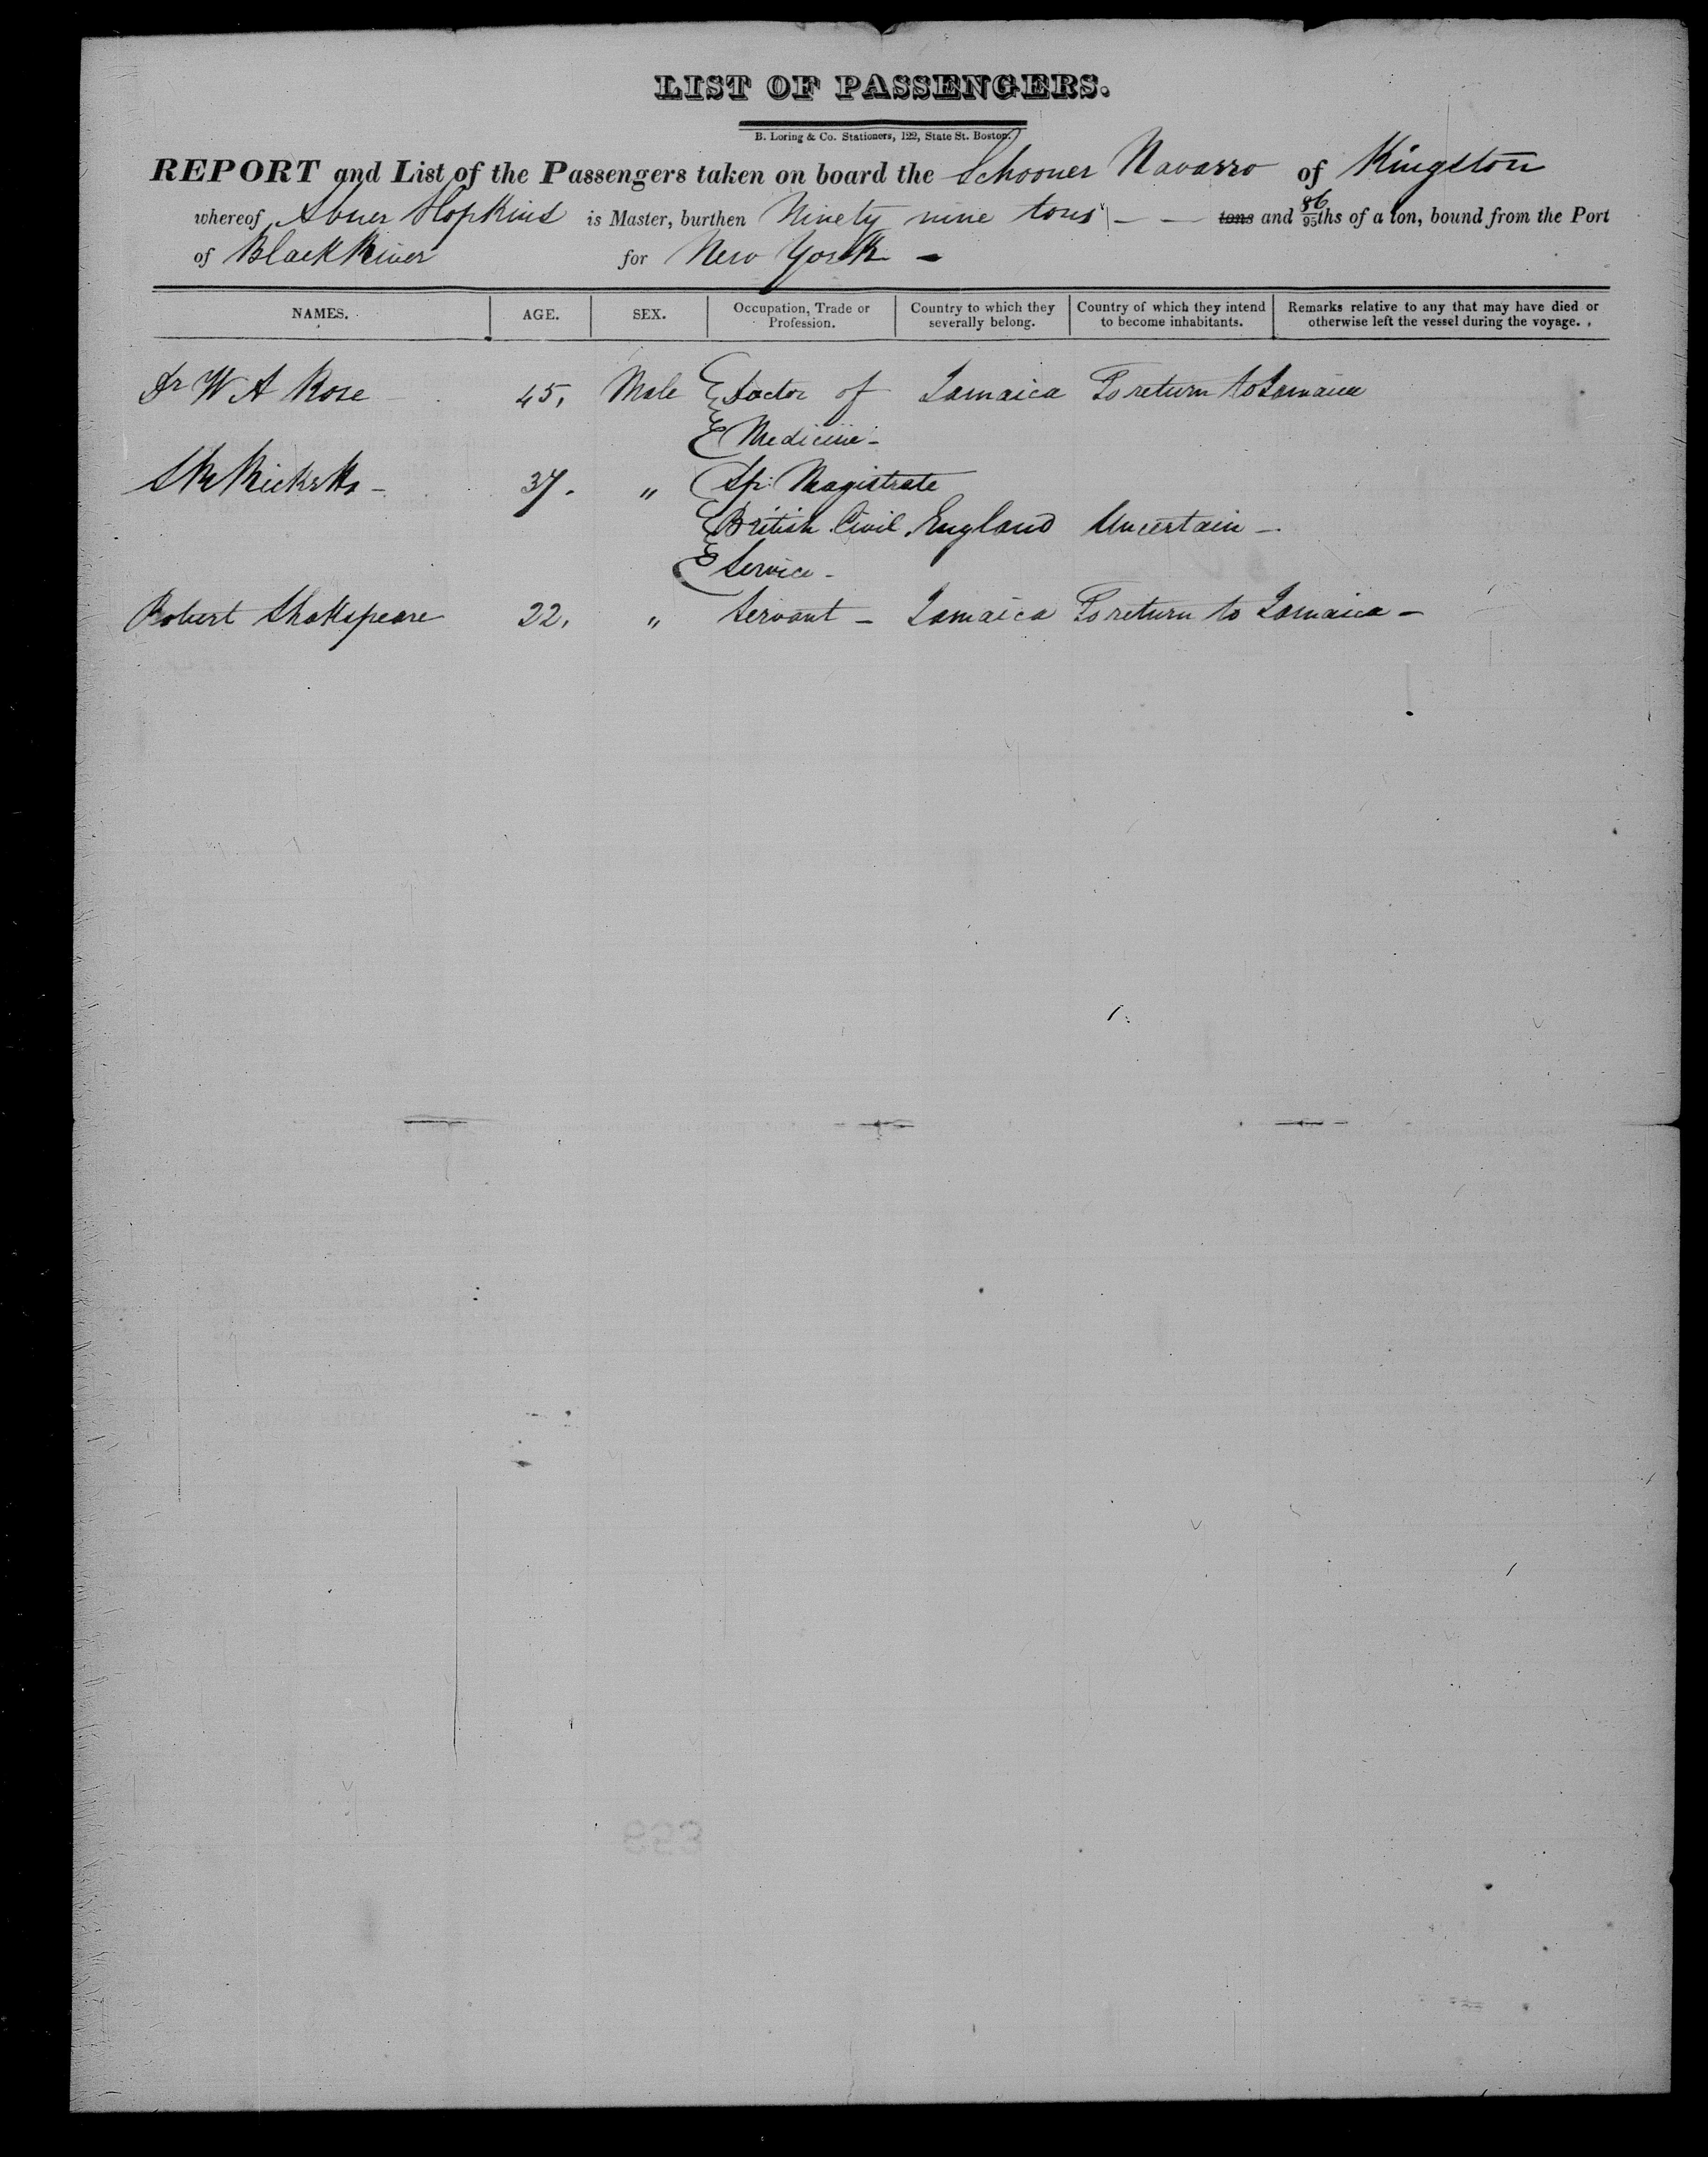 LIST OF PASSENGERS.
B. Loring & Co. Stationers, 122, State St. Boston.
REPORT and List of the Passengers taken on board the Schooner Navarro of Kingston
whereof Abner Hopkins is Master, burthen Ninety nine tons — — tons and 86/95ths of a ton, bound from the Port
of Black River for New York —
NAMES. AGE. SEX. Occupation, Trade or Profession. Country to which they severally belong. Country of which they intend to become inhabitants. Remarks relative to any that may have died or otherwise left the vessel during the voyage.
Dr W A Rose 45, Male Doctor of Jamaica To return to Jamaica
Medicine -
Ricketts - 37. " Sp: Magistrate
British Civil England Uncertain —
Service -
Robert Shakspeare 22, " Servant — Jamaica To return to Jamaica —
653